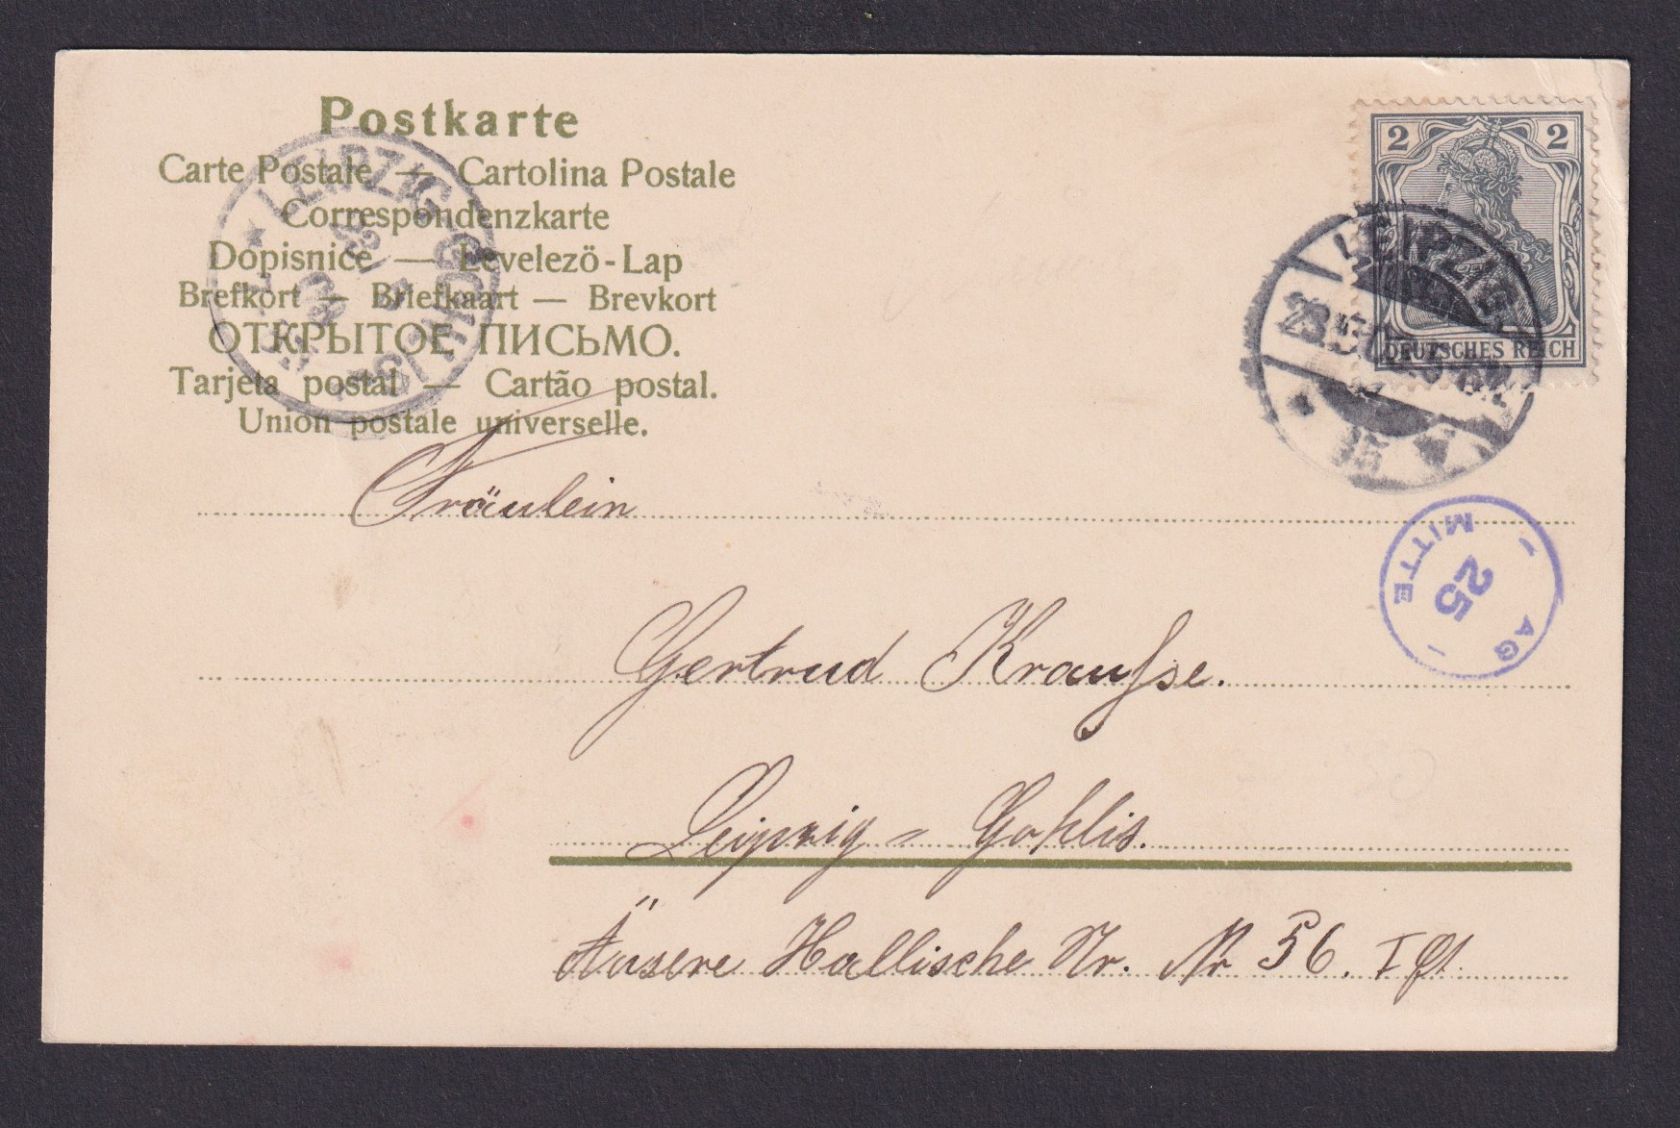 Postkarte
Carte Postale — Cartolina Postale
Correspondenzkarte
Dopisnice — Levelezö-Lap
Brefkort — Briefkaart — Brevkort
ОТКРЫТОЕ ПИСЬМО.
Tarjeta postal — Cartão postal.
Union postale universelle.
LEIPZIG GOHLIS
2 2
DEUTSCHES REICH
LEIPZIG
AG
25
MITTE
Fräulein
Gertrud Kraußse.
Leipzig = Gohlis.
Äusere Hallische Str. Nr 56. I